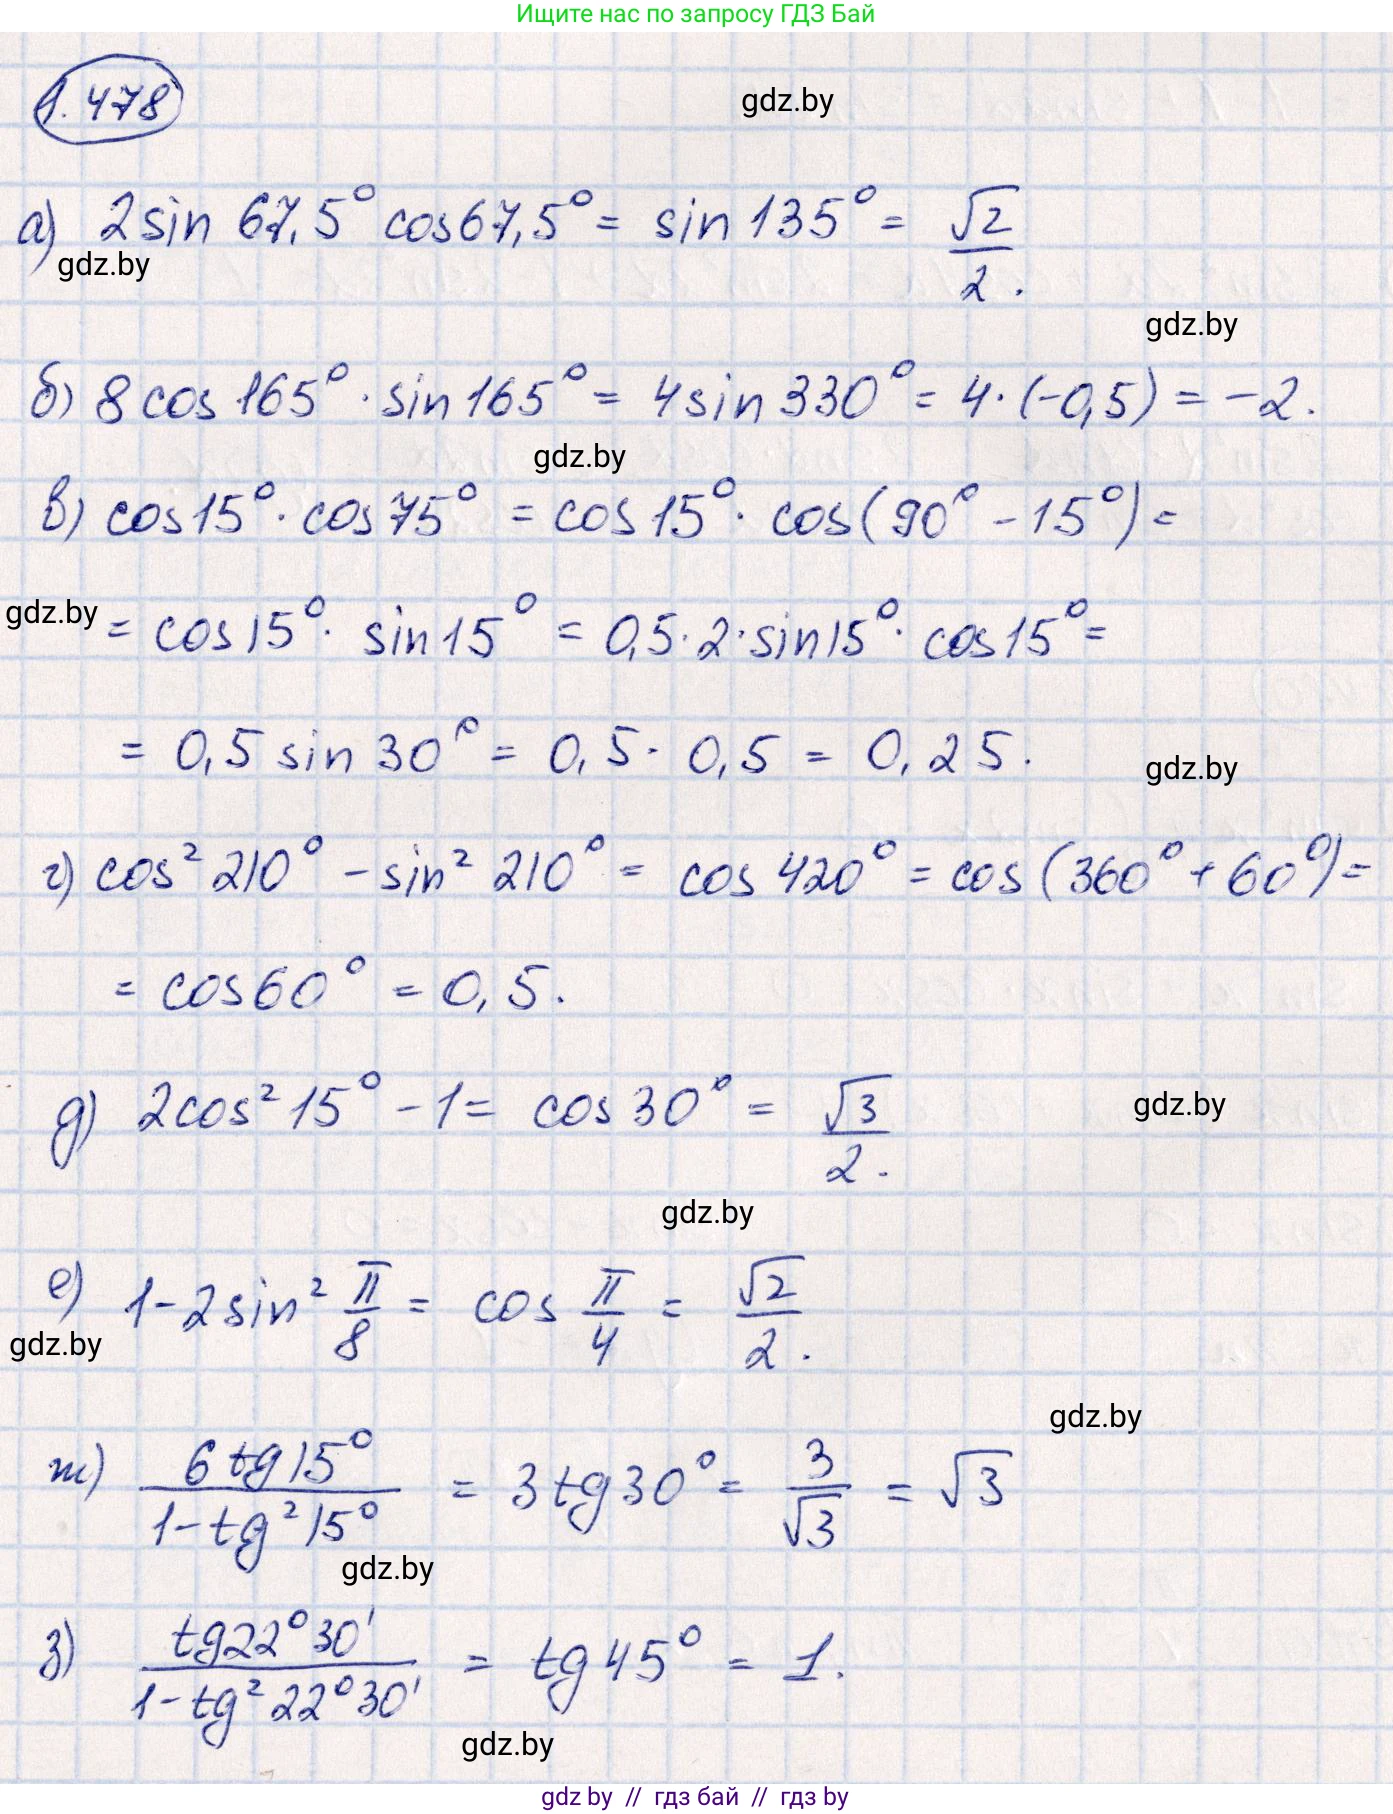 Ищите нас по запросу ГДЗ Бай
1.478
gdz.by
а) 2sin 67,5° cos67,5° = sin 135° = √2/2.
gdz.by
gdz.by
б) 8 cos 165° · sin 165° = 4 sin 330° = 4·(-0,5) = -2.
gdz.by
в) cos15° · cos75° = cos15° · cos(90° - 15°) =
gdz.by
= cos15° · sin15° = 0,5·2·sin15° · cos15° =
= 0,5 sin 30° = 0,5 · 0,5 = 0,25.
gdz.by
г) cos² 210° - sin² 210° = cos 420° = cos(360° + 60°) =
= cos60° = 0,5.
д) 2cos² 15° - 1 = cos 30° = √3/2.
gdz.by
gdz.by
е) 1 - 2sin² π/8 = cos π/4 = √2/2.
gdz.by
gdz.by
ж) 6 tg15°/1 - tg² 15° = 3 tg30° = 3/√3 = √3
gdz.by
з) tg22°30'/1 - tg² 22°30' = tg 45° = 1.
gdz.by
gdz by // гдз бай // гдз by